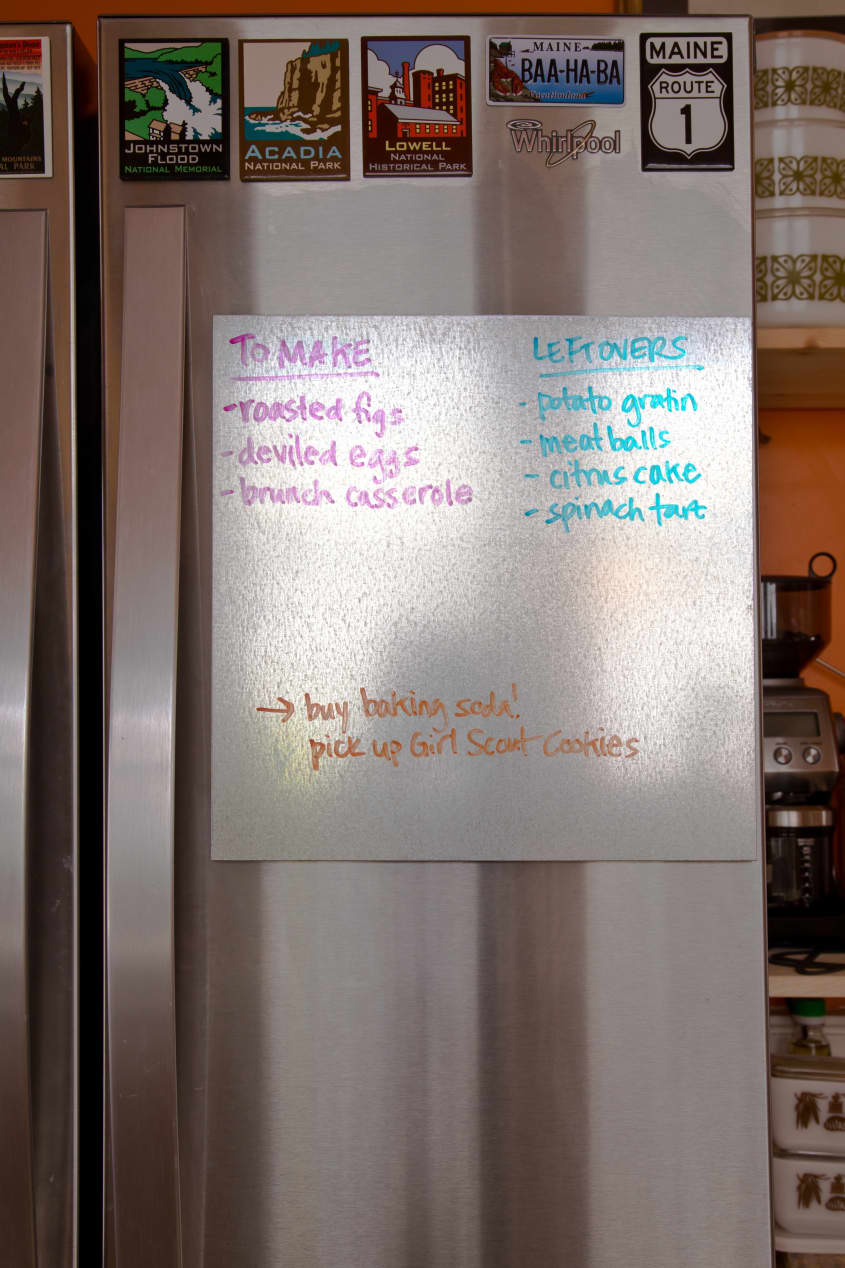 MOUNTAINS
AL PARK
JOHNSTOWN
FLOOD
NATIONAL MEMORIAL
ACADIA
NATIONAL PARK
LOWELL
NATIONAL
HISTORICAL PARK
MAINE
BAA-HA-BA
Vacationland
Whirlpool
MAINE
ROUTE
1
TO MAKE
- roasted figs
- deviled eggs
- brunch casserole
LEFTOVERS
- potato gratin
- meatballs
- citrus cake
- spinach tart
→ buy baking soda!
pick up Girl Scout Cookies